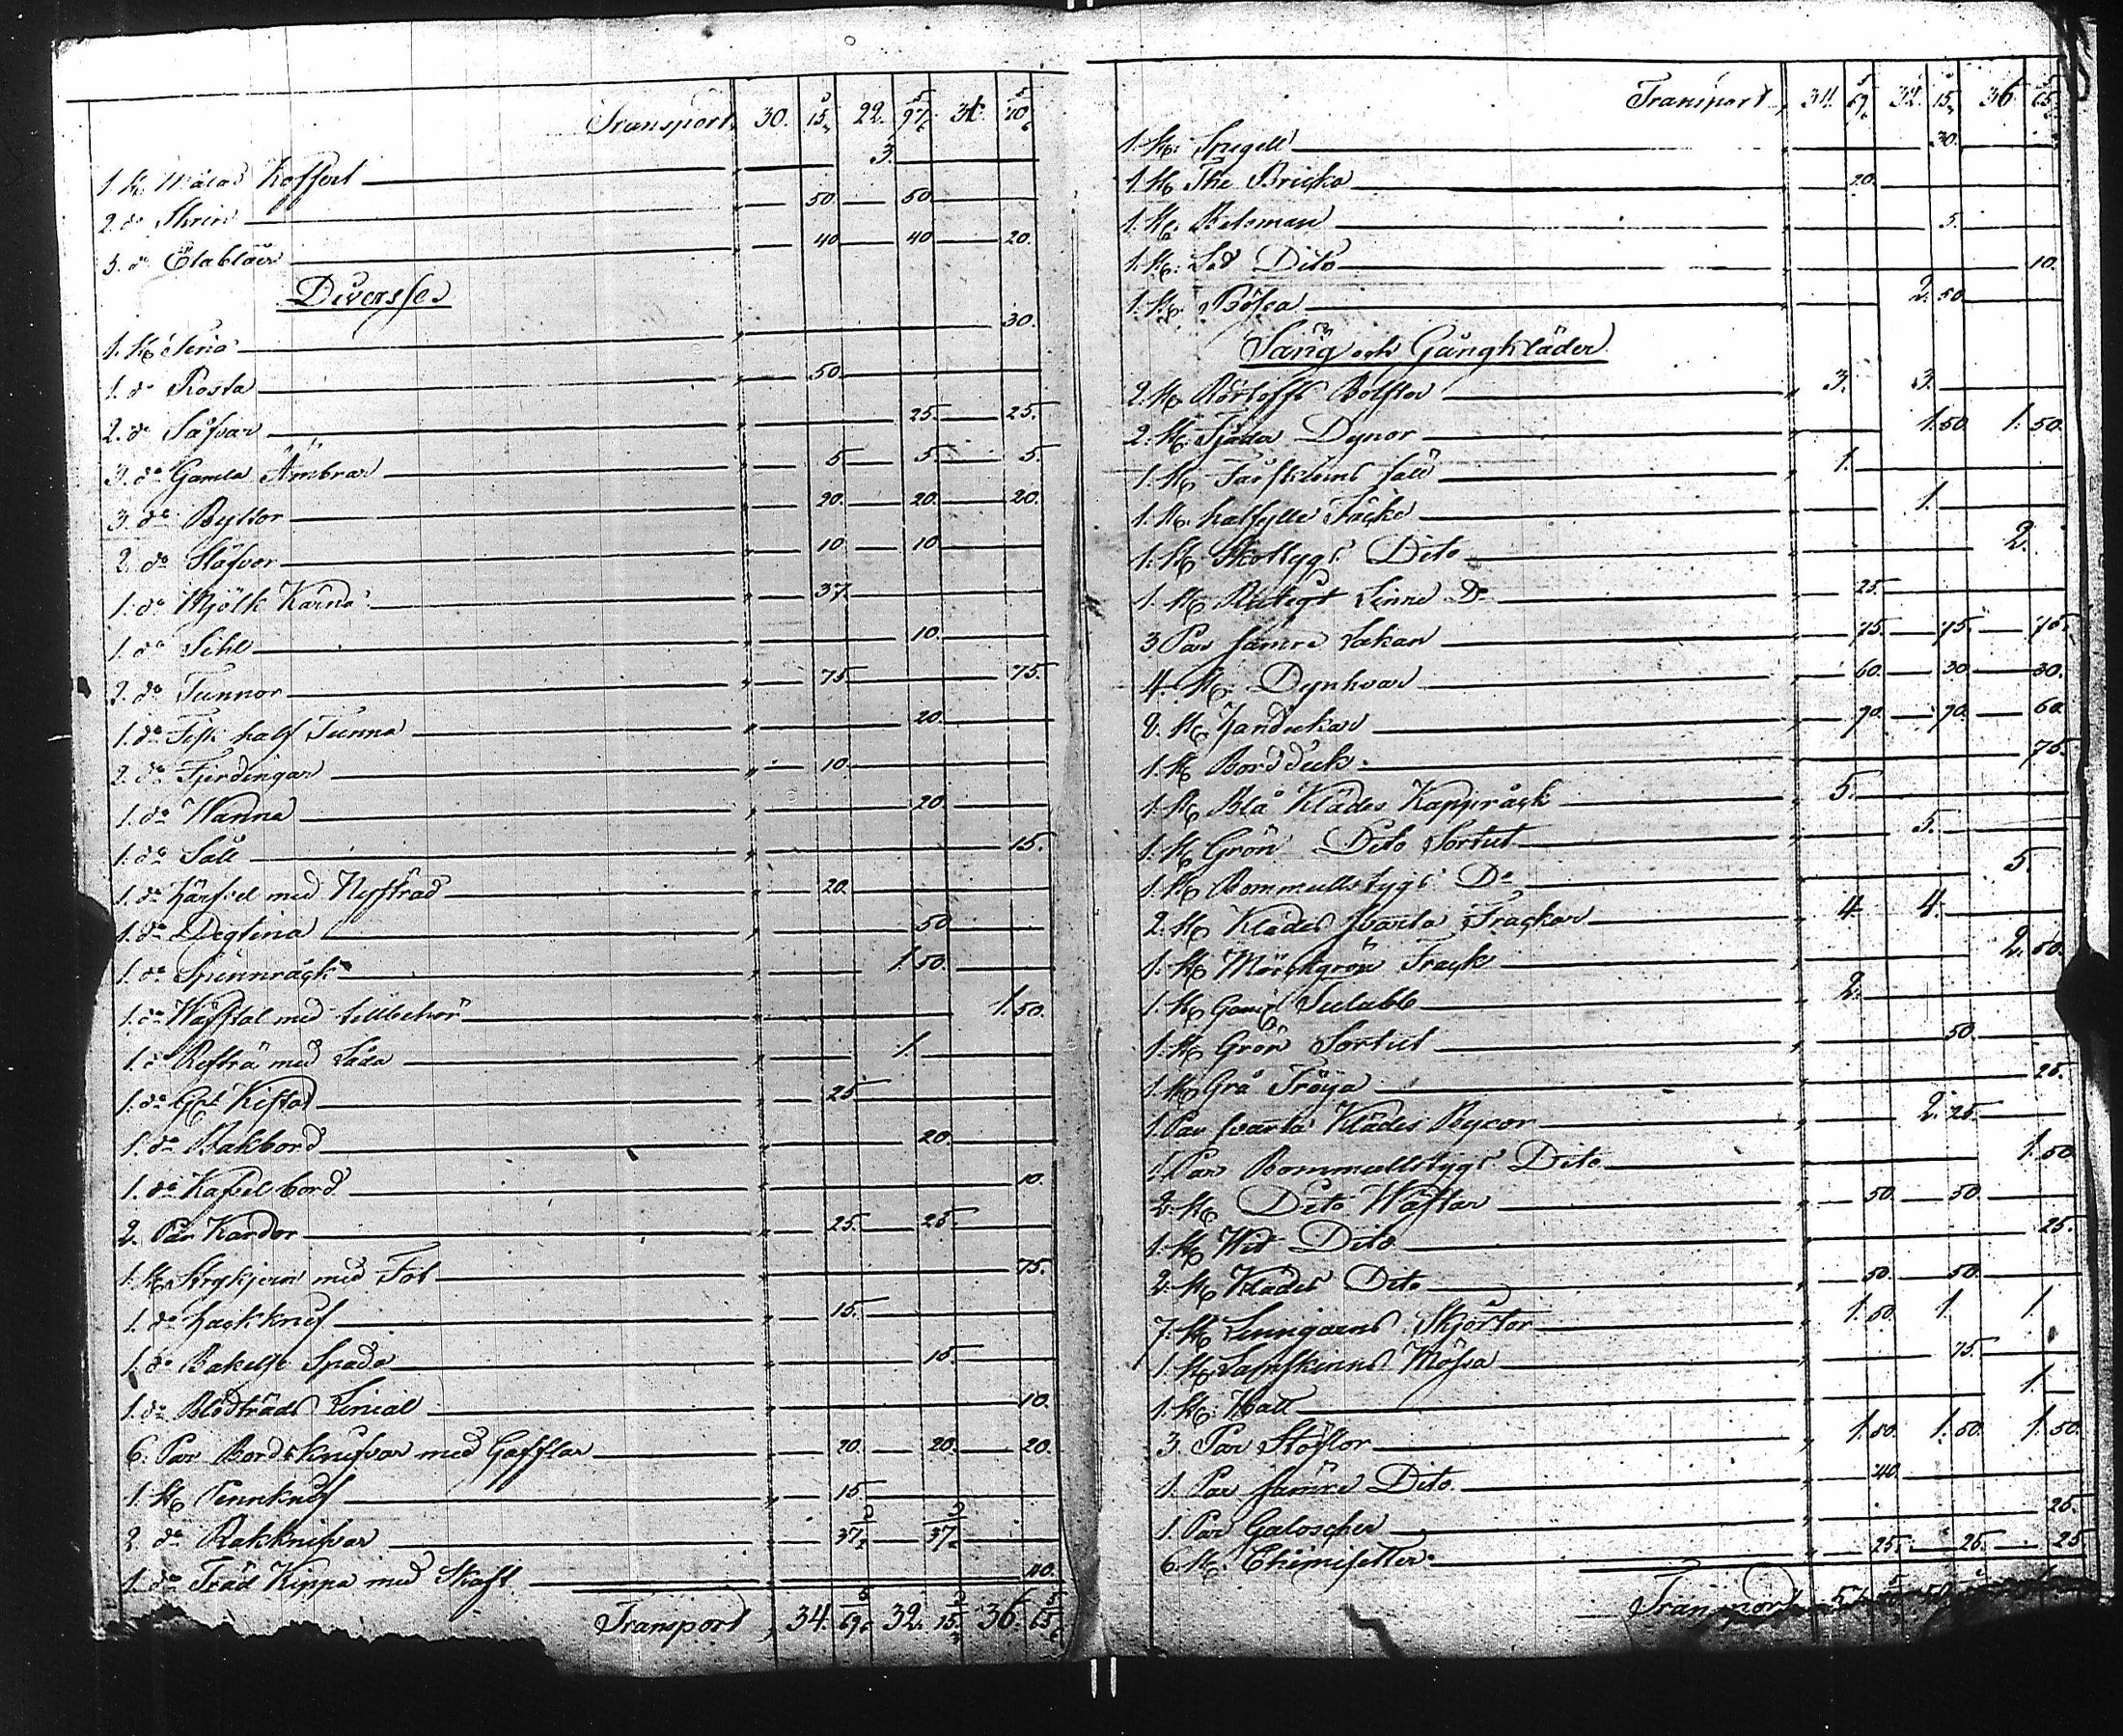 Transport 30. 15 22. 97 31. 70
1. st. Målad Koffert 3.
2. do Skrin 50 50
3. do Ölablåer 40 40 20.
Diversse
1. st. 30.
1. do Rosta 50
2. do Såfvar 25. 25.
3. do Gamla Ämbrar 5. 5. 5.
3. do Byttor 20. 20. 20
2. do Stäfvor 10 10
1. do Mjölk Kärna 37
1. do Sihl 10.
2. do Tunnor 75 75.
1. do Fisk half Tunna 20.
2. do Fjerdingar 10
1. do Wanna 20.
1. do Såll 15.
1. do Härfvel med Nystrad 20.
1. do Degtina 50
1. do Spinnråck 1. 50.
1. do Wäfstol med tillbehör 1. 50.
1. do med Låda 1.
1. do Kista 25
1. do Bakbord 20
1. do Kafvelbord 10.
2. Par Kardor 25. 25.
1. st. Strykjern med Fot 75.
1. do Hackknif 15.
1. do Bakelse Spade 15.
1. do Blodträds Linial 10.
6. Par Bordsknifvar med Gafflar 20. 20. 20.
1. st. Pennknif 15
2. do Rakknifvar 37 37
1. do Träd Kippa med Skaft 10.
Transport 34. 69 32. 15 36. 65
Transport 34. 69 32. 15 36. 65
1. st. Spegell 30.
1. st. The Bricka 20.
1. st. Betsman 5.
1. st. Dito 10.
1. st. Bössa 2. 50.
Säng och Gångkläder
2. st. Bolstrar 3. 3.
2. st. Fjäder Dynor 1. 50 1. 50.
1. st. Fårskinns fäll 1.
1. st. halfylle Täcke 1.
1. st. Skottygs Dito 2.
1. st. Rutigt Linne Do 25.
3 Par sämre Lakan 75. 75. 75.
4. st. Dynhvar 60. 30. 30.
8. st. Handukar 70. 70. 60
1. st. Bordduk 75.
1. st. Blå Klädes Kappråck 5.
1. st. Grön Dito Sortut 5.
1. st. Bommullstygs Do 5.
2. st. Klädes svarta Frackar 4 4.
1. st. Mörckgrön Frack 2. 50.
1. st. 2.
1. st. Grön Sortut 50.
1. st. Grå Tröya 25.
1. Par svarta Klädes Byxor 2. 25.
1 Par Bommullstygs Dito 1. 50
2. st. Dito Wästar 50. 50.
1. st. Wit Dito 25
2. st. Klädes Dito 50. 50.
7. st. Linngarns Skjortor 1. 50. 1. 1.
1. st. Lamskinns Mössa 75.
1. st. Hatt 1.
3. Par Stöflor 1. 50. 1. 50. 1. 50.
1. Par sämre Dito 40.
1. Par Galoscher 25.
6. st. Chemisetter 25. 25. 25
Transport